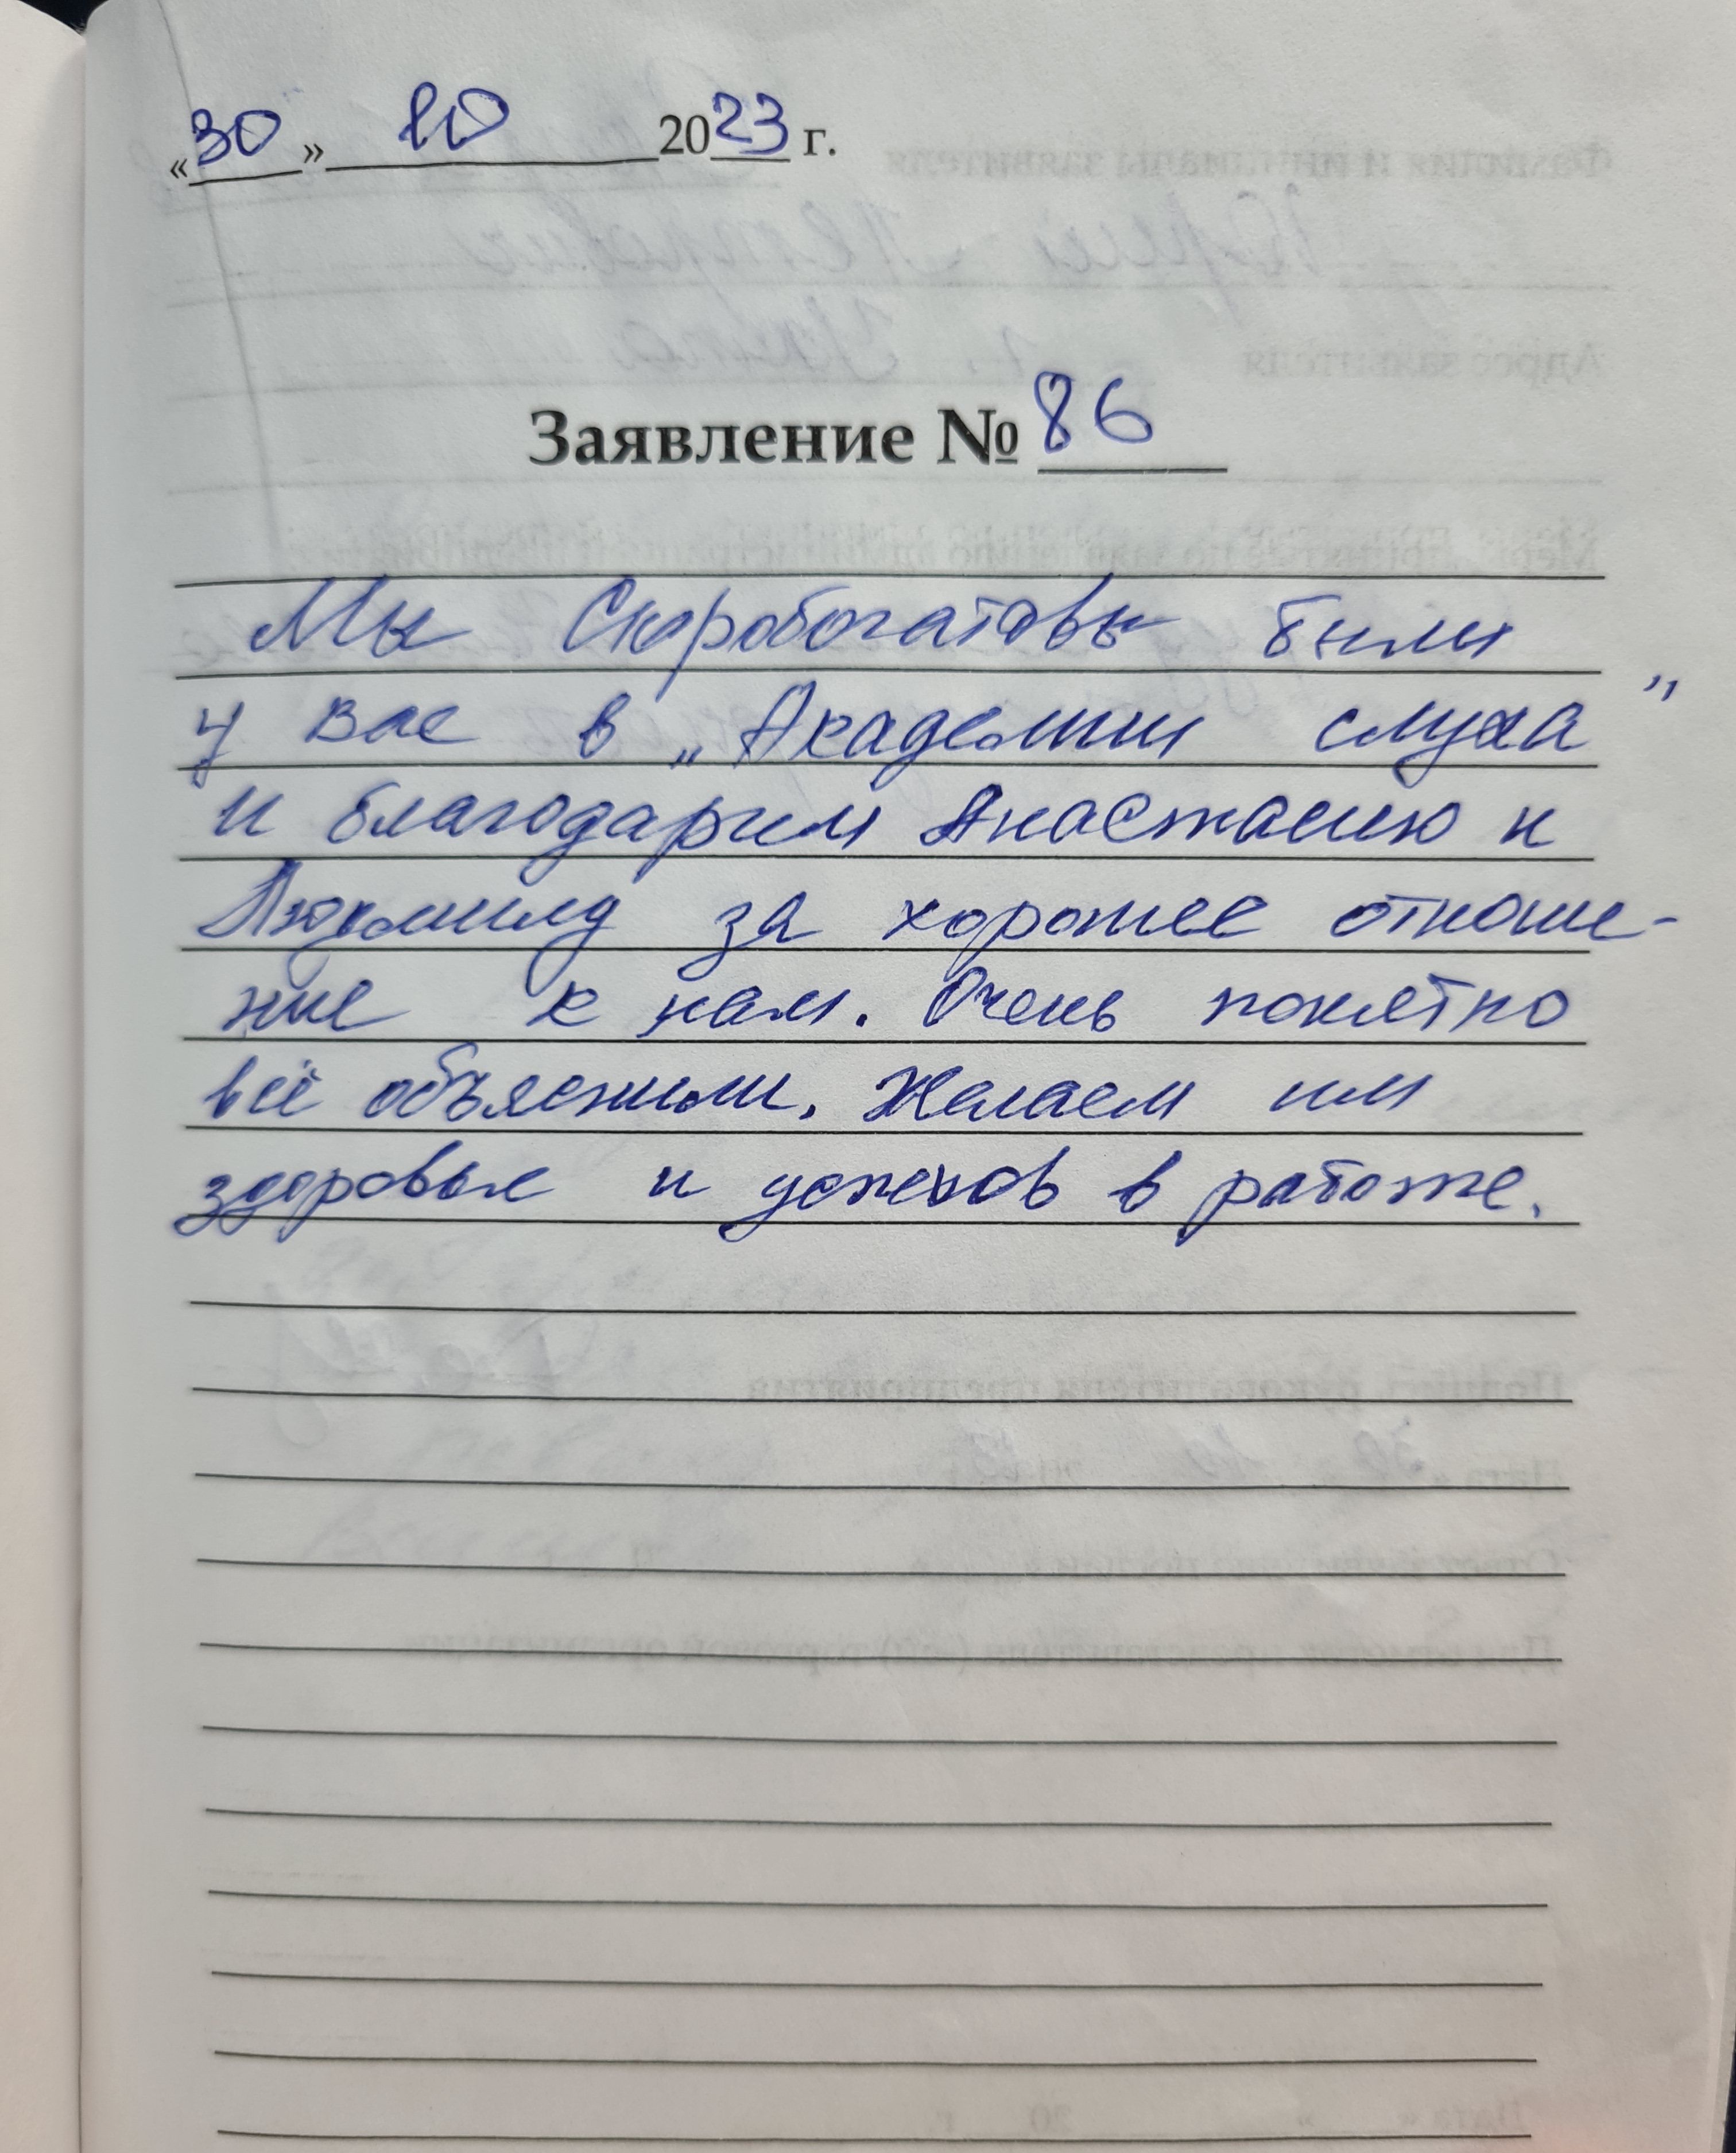 «30» 10 2023 г.
Заявление № 86
Мы Скоробогатовы были
у вас в „Академии слуха"
и благодарим Анастасию и
Людмилу за хорошее отноше-
ние к нам. Очень понятно
всё объяснили. Желаем им
здоровья и успехов в работе.